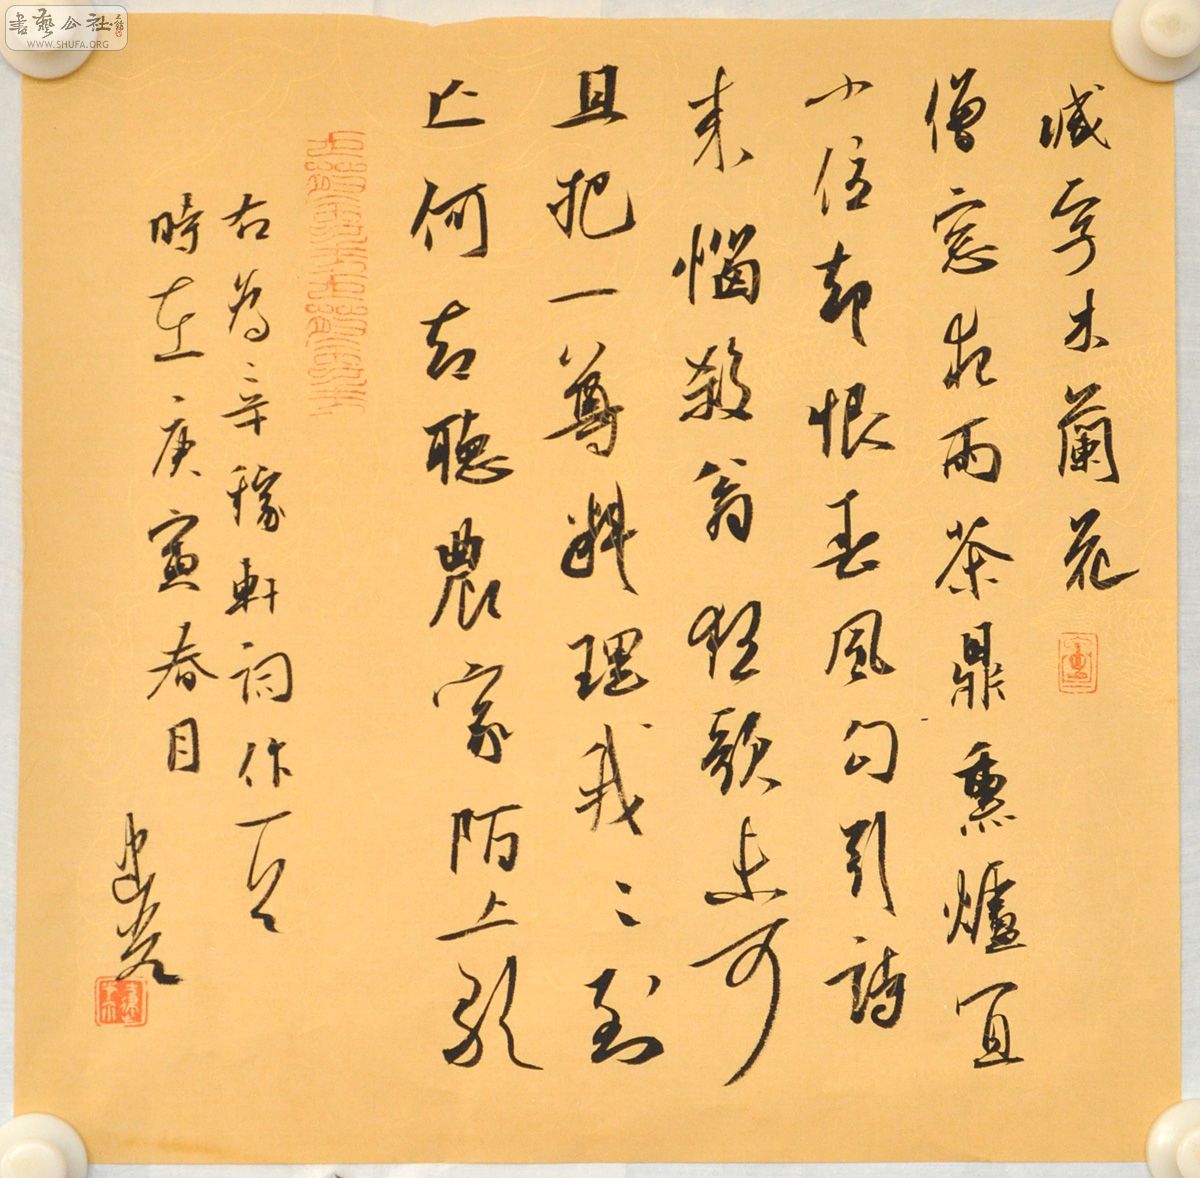 書藝公社
WWW.SHUFA.ORG
減字木蘭花
僧窓夜雨茶鼎熏爐宜
小住却恨春風勾引詩
来惱殺翁狂歌未可
且把一尊料理我〻到
亡何却聽農家陌上歌
右為辛稼軒詞作一首
時在庚寅春月